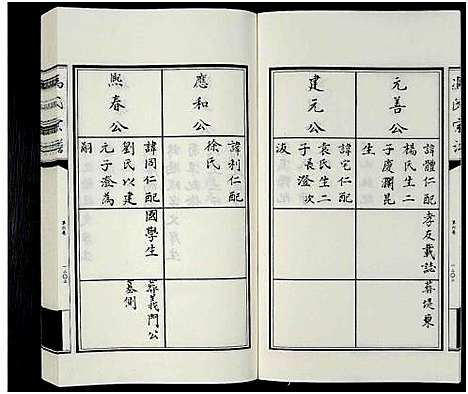 元善公
諱體仁配
楊氏生二
子慶瀾昆
生
孝友載誌
葬堤東
建元公
諱宅仁配
袁氏生二
子長澄次
應和公
諱利仁配
徐氏
熙春公
諱同仁配
劉氏以建
元子澄為
嗣
國學生
葬義門公
墓側
馮氏宗譜